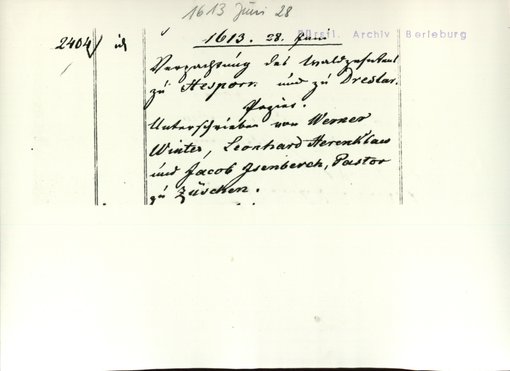 1613 Juni 28
Fürstl. Archiv Berleburg
2404
1613. 28. Juni
Verpachtung des Waldzehntens
zu Hesporn und zu Dreslar.
Papier.
Unterschrieben von Werner
Winter, Leonhard Herenklaw
und Jacob Isenberch, Pastor
zu Züschen.